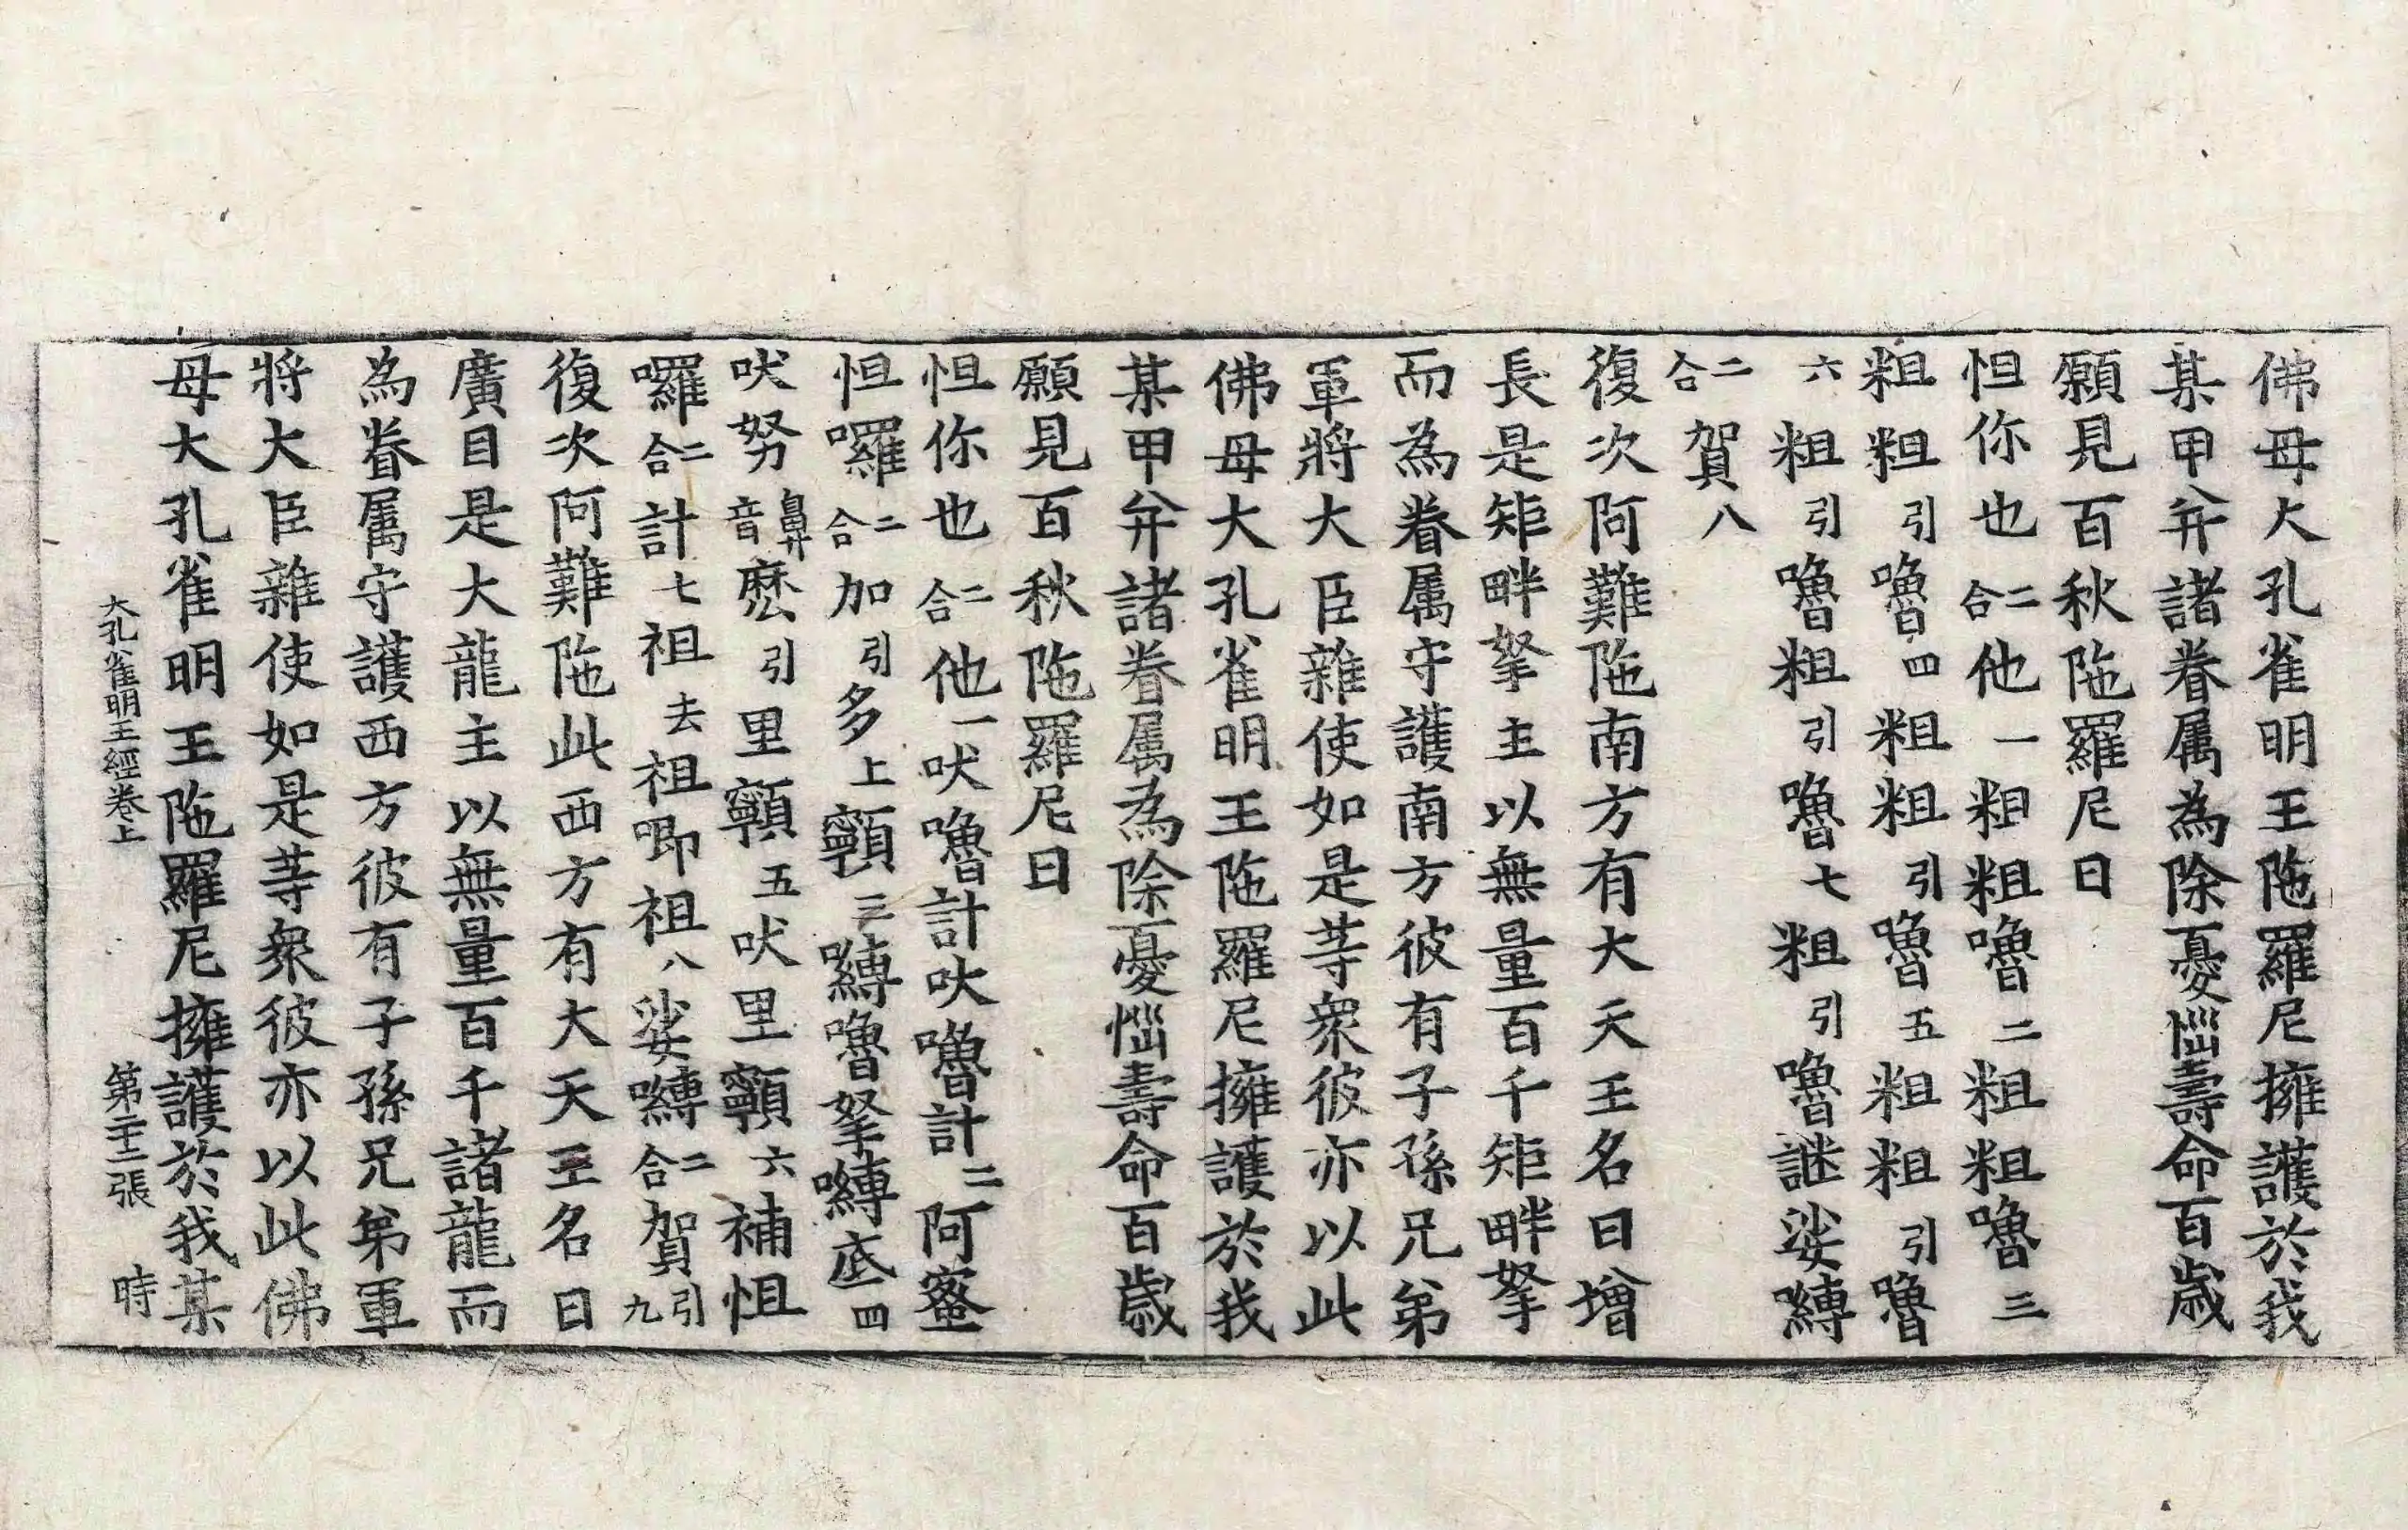 佛母大孔雀明王陁羅尼擁護於我
某甲并諸眷属為除憂惱壽命百歲
願見百秋陁羅尼曰
怛你也二合他一粗粗嚕二粗粗嚕三
粗粗引嚕四粗粗引嚕五粗粗引嚕
六粗引嚕粗引嚕七粗引嚕謎娑嚩
二合賀八
復次阿難陁南方有大天王名曰增
長是矩畔拏主以無量百千矩畔拏
而為眷属守護南方彼有子孫兄弟
軍將大臣雜使如是等衆彼亦以此
佛母大孔雀明王陁羅尼擁護於我
某甲并諸眷属為除憂惱壽命百歲
願見百秋陁羅尼曰
怛你也二合他一吠嚕計吠嚕計二阿蜜
怛囉二合加引多上顐三嚩嚕拏嚩底四
吠努鼻音麽引里顐五吠里顐六補怛
囉二合計七祖去祖唧祖八娑嚩二合賀引九
復次阿難陁此西方有大天王名曰
廣目是大龍主以無量百千諸龍而
為眷属守護西方彼有子孫兄弟軍
將大臣雜使如是等衆彼亦以此佛
母大孔雀明王陁羅尼擁護於我某
大孔雀明王經卷上 第二十二張 時